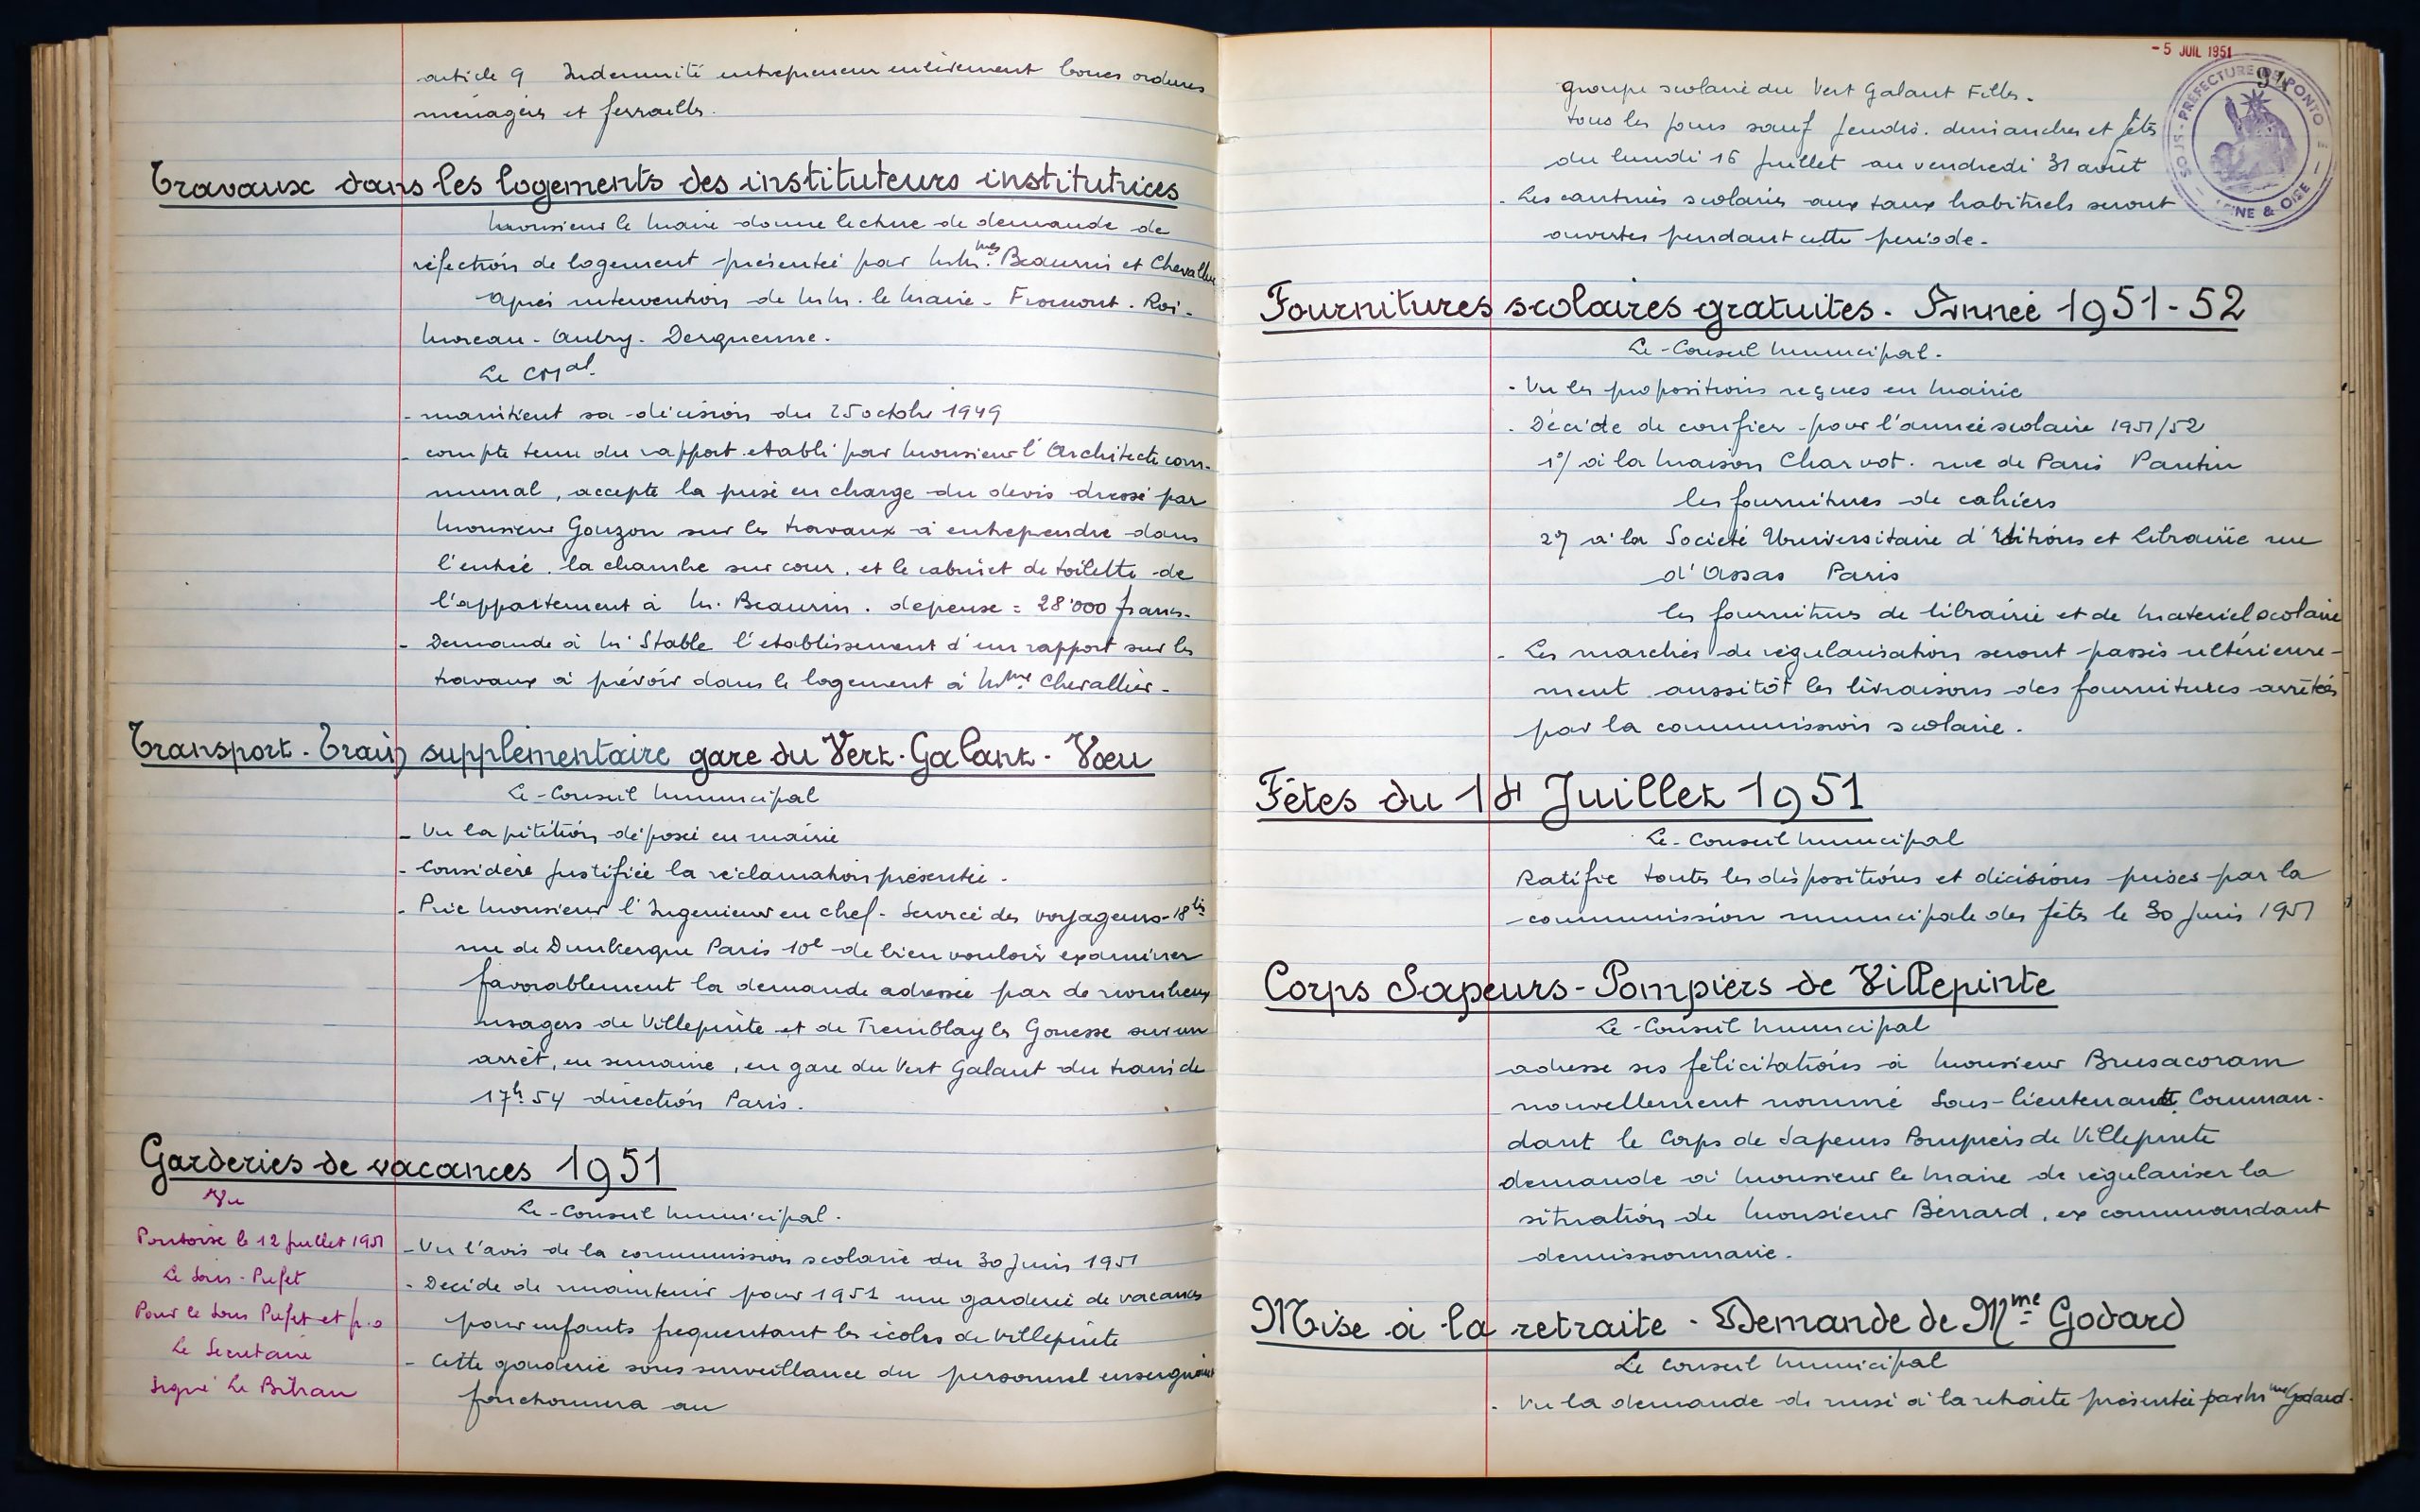 article 9 Indemnité entrepreneur enlèvement boues ordures
ménagères et ferrailles.
Travaux dans les logements des instituteurs institutrices
Monsieur le Maire donne lecture de demande de
réfection de logement présentée par M.M.mes Beaurin et Chevallier
Après intervention de M.M. le Maire - Fromont. Roi.
Moreau - Aubry. Derquenne.
Le CMal.
- maintient sa décision du 25 octobre 1949
- compte tenu du rapport etabli par Monsieur l'Architecte com-
munal, accepte la prise en charge du devis dressé par
Monsieur Gouzon sur les travaux à entreprendre dans
l'entrée, la chambre sur cour, et le cabinet de toilette de
l'appartement à M. Beaurin. dépense = 28'000 francs.
- Demande à M. Stable l'etablissement d'un rapport sur les
travaux à prévoir dans le logement à Mme Chevallier-
Transport - Train supplémentaire gare du Vert-Galant - Vœu
Le Conseil Municipal
- Vu la pétition déposée en mairie
- Considère justifiée la réclamation présentée.
- Prie Monsieur l'Ingenieur en chef - Service des voyageurs - 18bis
rue de Dunkerque Paris 10e de bien vouloir examiner
favorablement la demande adressée par de nombreux
usagers de Villepinte et de Tremblay les Gonesse sur un
arrêt, en semaine, en gare du Vert Galant du train de
17h54 direction Paris.
Garderies de vacances 1951
Vu
Pontoise le 12 juillet 1951
Le Sous-Préfet
Pour le Sous Préfet et p.o
Le Secrétaire
Signé Le Bihan
Le Conseil Municipal.
- Vu l'avis de la commission scolaire du 30 Juin 1951
- Decide de maintenir pour 1951 une garderie de vacances
pour enfants frequentant les écoles de Villepinte
- Cette garderie sous surveillance du personnel enseignant
fonctionnera au
- 5 JUIL 1951
91
SOUS-PRÉFECTURE DE PONTOISE
SEINE & OISE
groupe scolaire du Vert Galant Filles.
tous les jours sauf jeudis. dimanches et fêtes
du lundi 16 juillet au vendredi 31 août
- Les cantines scolaires aux taux habituels seront
ouvertes pendant cette période.
Fournitures scolaires gratuites. Année 1951-52
Le Conseil Municipal.
- Vu les propositions reçues en Mairie
- Décide de confier pour l'année scolaire 1951/52
1°/ à la Maison Charvot. rue de Paris Pantin
les fournitures de cahiers
2°/ à la Société Universitaire d'Editions et Librairie rue
d'Assas Paris
les fournitures de librairie et de matériel scolaire
- Les marchés de régularisation seront passés ultérieure-
ment aussitôt les livraisons des fournitures arrêtées
par la commission scolaire.
Fêtes du 14 Juillet 1951
Le Conseil Municipal
Ratifie toutes les dispositions et décisions prises par la
commission municipale des fêtes le 30 Juin 1951
Corps Sapeurs-Pompiers de Villepinte
Le Conseil Municipal
adresse ses félicitations à Monsieur Brusacoram
nouvellement nommé Sous-lieutenant Comman-
dant le Corps de Sapeurs Pompiers de Villepinte
demande à Monsieur le Maire de régulariser la
situation de Monsieur Bénard, ex commandant
demissionnaire.
Mise à la retraite - Demande de Mme Godard
Le Conseil Municipal
- Vu la demande de mise à la retraite présentée par Mme Godard.